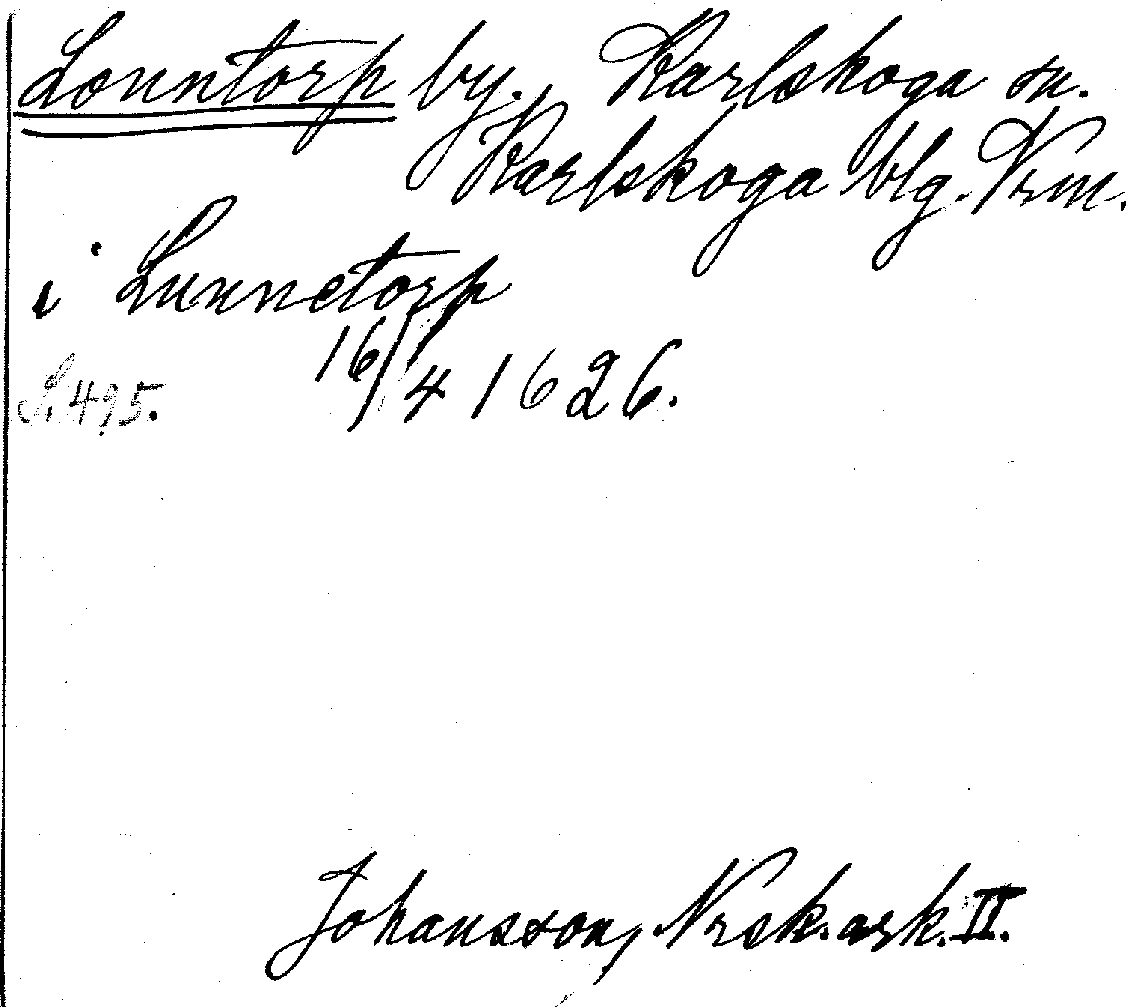 Lonntorp by. Karlskoga sn.
Karlskoga blg. Vrm.
i Lunnetorp
16/4 1626.
S. 495.
Johansson, Nrsk. ark. II.